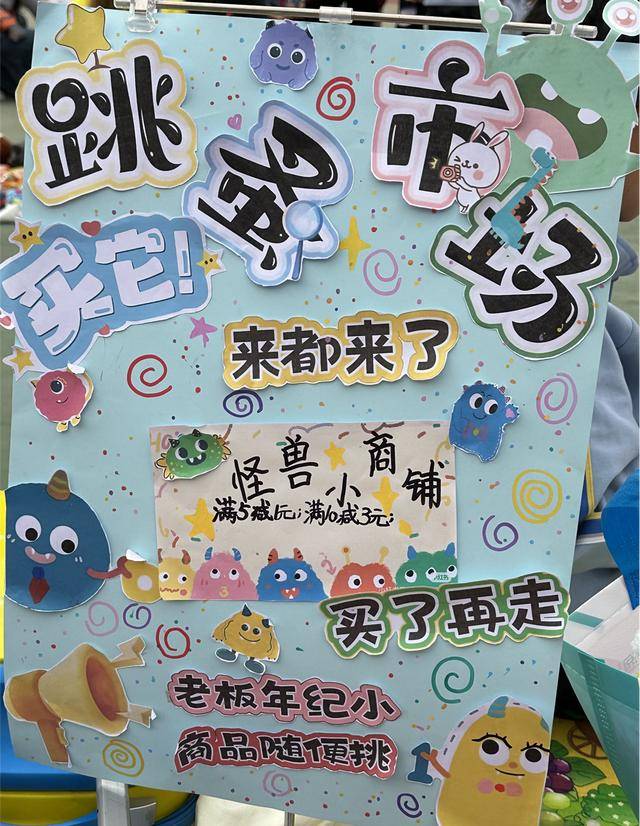 跳蚤市场
买它!
来都来了
怪兽小商铺
满5减1元;满10减3元;
买了再走
老板年纪小
商品随便挑